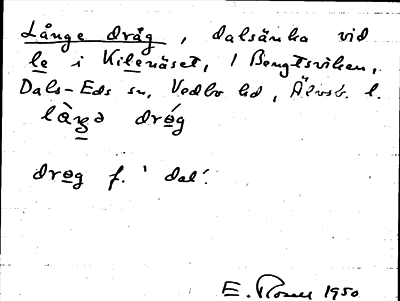 Långe dråg, dalsänka vid
le i Kilenäset, i Bengtsviken,
Dals-Eds sn, Vedbo hd, Älvsb. l.
dróg
drog f. 'dal'.
E. Rosell 1950